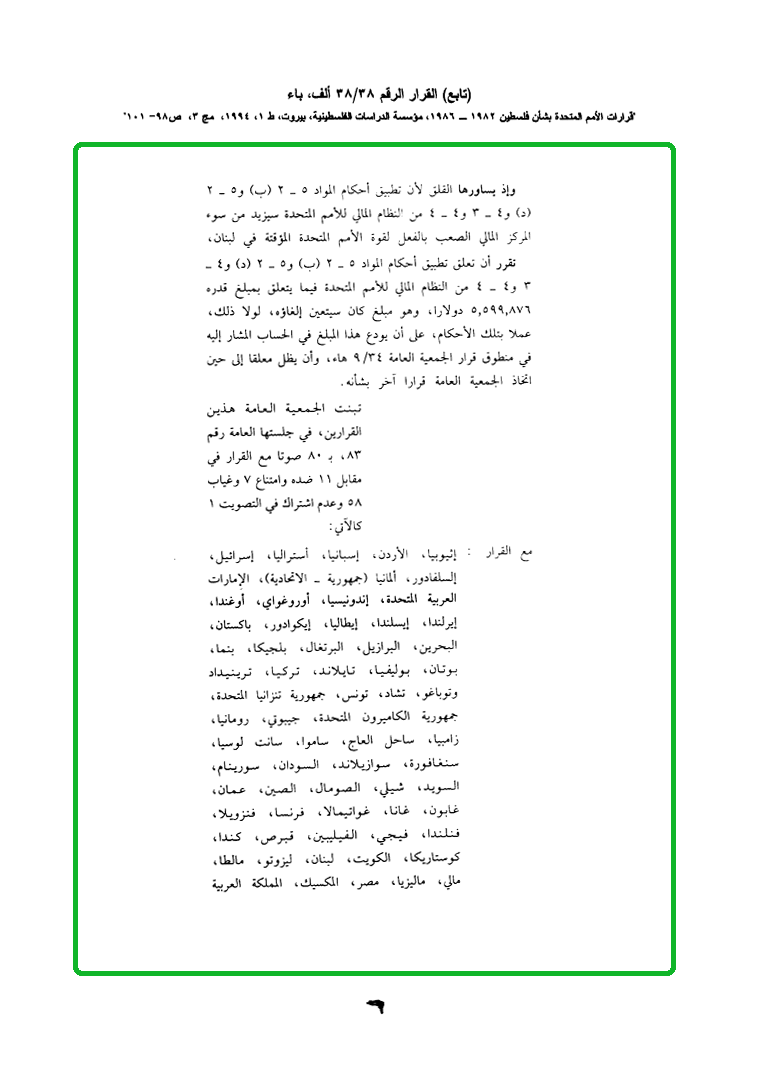 (تابع) القرار الرقم ٣٨/٣٨ ألف، باء
"قرارات الأمم المتحدة بشأن فلسطين ١٩٨٢ ــ ١٩٨٦، مؤسسة الدراسات الفلسطينية، بيروت، ط ١، ١٩٩٤، مج ٣، ص٩٨- ١٠١"
وإذ يساورها القلق لأن تطبيق أحكام المواد ٥ ــ ٢ (ب) و٥ ــ ٢
(د) و٤ ــ ٣ و٤ ــ ٤ من النظام المالي للأمم المتحدة سيزيد من سوء
المركز المالي الصعب بالفعل لقوة الأمم المتحدة المؤقتة في لبنان،
تقرر أن تعلق تطبيق أحكام المواد ٥ ــ ٢ (ب) و٥ ــ ٢ (د) و٤ ــ
٣ و٤ ــ ٤ من النظام المالي للأمم المتحدة فيما يتعلق بمبلغ قدره
٥,٥٩٩,٨٧٦ دولارا، وهو مبلغ كان سيتعين إلغاؤه، لولا ذلك،
عملا بتلك الأحكام، على أن يودع هذا المبلغ في الحساب المشار إليه
في منطوق قرار الجمعية العامة ٩/٣٤ هاء، وأن يظل معلقا إلى حين
اتخاذ الجمعية العامة قرارا آخر بشأنه.
تبنت الجمعية العامة هذين
القرارين، في جلستها العامة رقم
٨٣، بـ ٨٠ صوتا مع القرار في
مقابل ١١ ضده وامتناع ٧ وغياب
٥٨ وعدم اشتراك في التصويت ١
كالآتي:
مع القرار : إثيوبيا، الأردن، إسبانيا، أستراليا، إسرائيل،
إلسلفادور، ألمانيا (جمهورية ــ الاتحادية)، الإمارات
العربية المتحدة، إندونيسيا، أوروغواي، أوغندا،
إيرلندا، إيسلندا، إيطاليا، إيكوادور، باكستان،
البحرين، البرازيل، البرتغال، بلجيكا، بنما،
بوتان، بوليفيا، تايلاند، تركيا، ترينيداد
وتوباغو، تشاد، تونس، جمهورية تنزانيا المتحدة،
جمهورية الكاميرون المتحدة، جيبوتي، رومانيا،
زامبيا، ساحل العاج، ساموا، سانت لوسيا،
سنغافورة، سوازيلاند، السودان، سورينام،
السويد، شيلي، الصومال، الصين، عمان،
غابون، غانا، غواتيمالا، فرنسا، فنزويلا،
فنلندا، فيجي، الفيليبين، قبرص، كندا،
كوستاريكا، الكويت، لبنان، ليزوتو، مالطا،
مالي، ماليزيا، مصر، المكسيك، المملكة العربية
٦